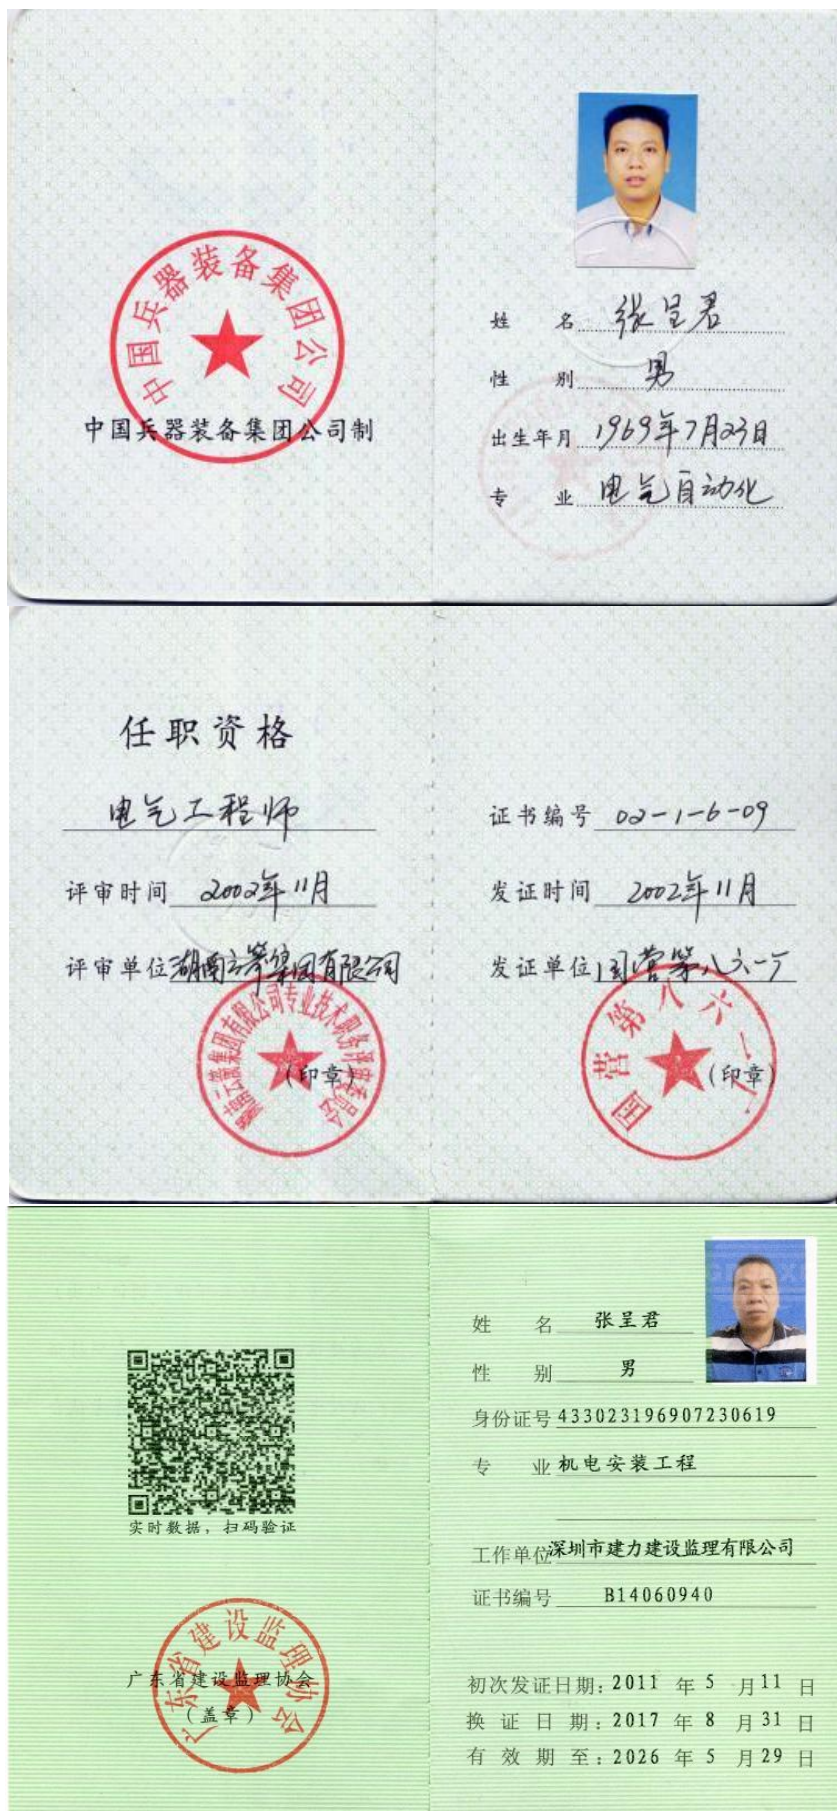 中国兵器装备集团公司
中国兵器装备集团公司制
姓 名 张呈君
性 别 男
出生年月 1969年7月23日
专 业 电气自动化
任职资格
电气工程师
评审时间 2002年11月
评审单位 湖南云箭集团有限公司
湖南云箭集团有限公司专业技术职务评审委员会
(印章)
证书编号 02-1-6-09
发证时间 2002年11月
发证单位 国营第八六一厂
国营第八六一厂
(印章)
实时数据，扫码验证
广东省建设监理协会
广东省建设监理协会
(盖章)
姓 名 张呈君
性 别 男
身份证号 433023196907230619
专 业 机电安装工程
工作单位 深圳市建力建设监理有限公司
证书编号 B14060940
初次发证日期: 2011 年 5 月 11 日
换 证 日 期: 2017 年 8 月 31 日
有 效 期 至: 2026 年 5 月 29 日